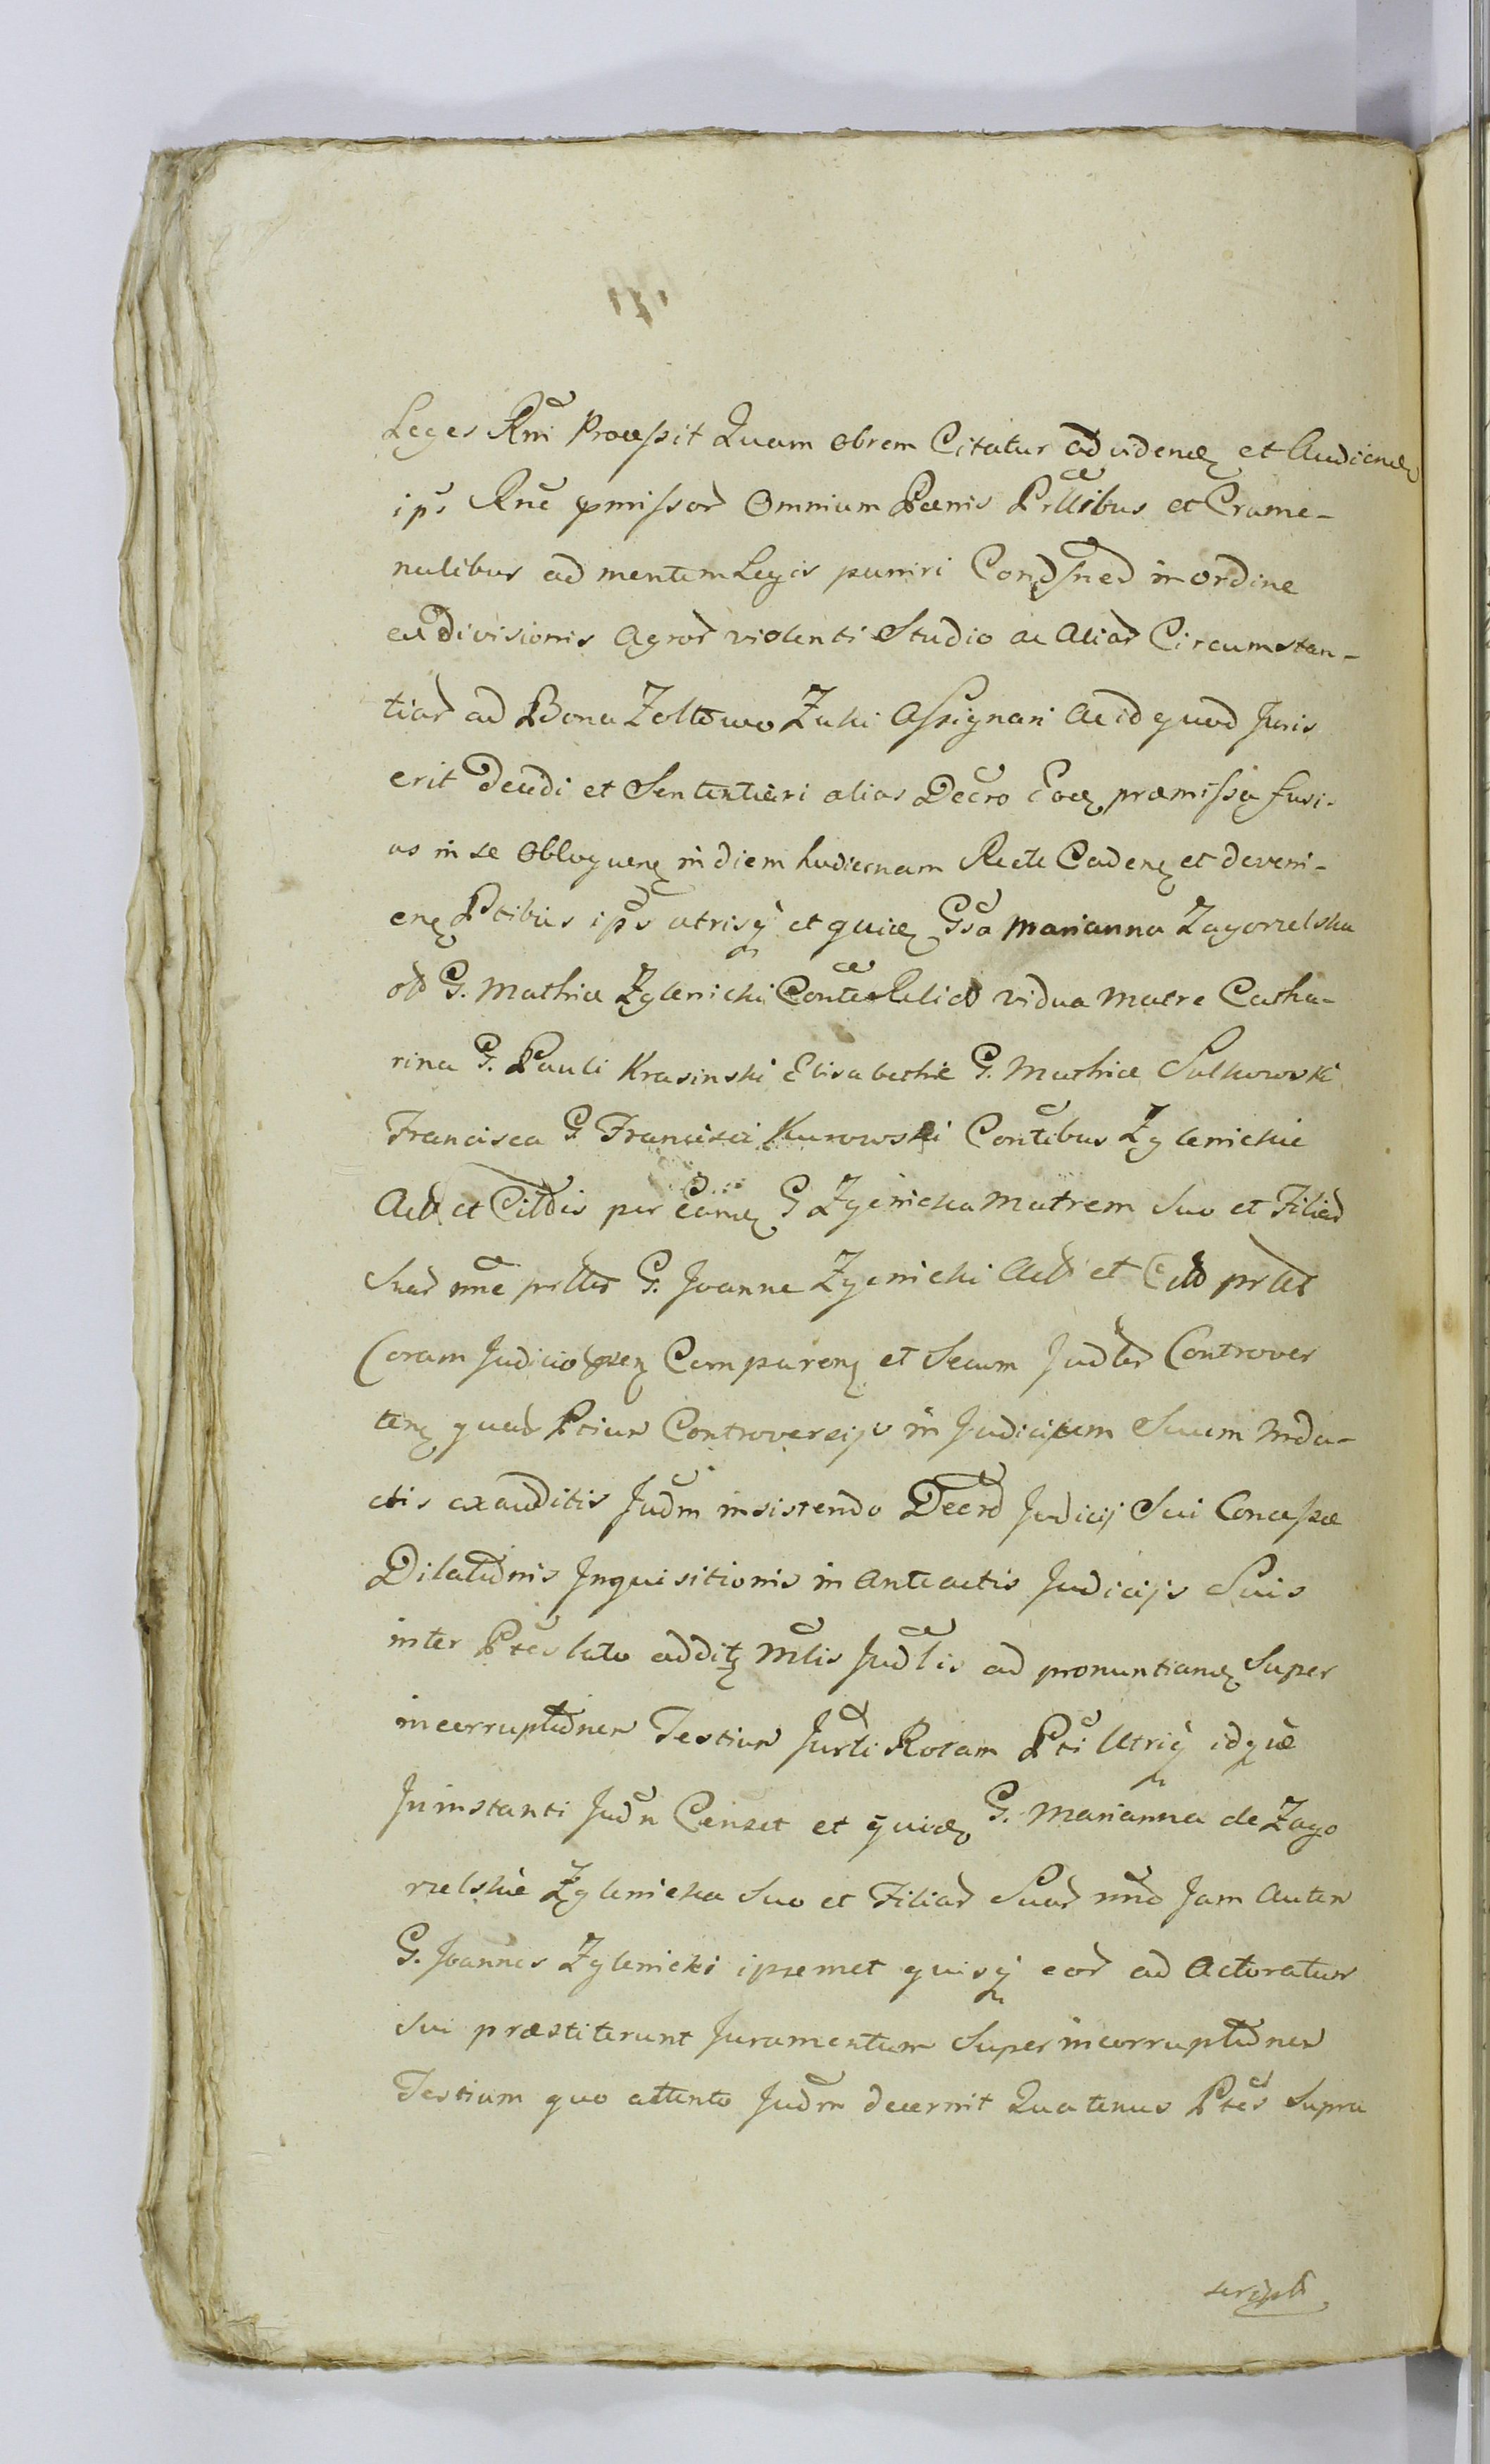 Leges Rni Processit Quam obrem Citatur ad videnđ et Audienđ
ips Rne pmissor Omnium Pœnis Prllibus et Crime-
nalibus ad mentem Legis puniri in ordine
divisionis Agror violenti Studio ac Aliar Circumstan-
tiar ad Bona Zoltowo Zuki Assignari ac id quod Juris
erit Decidi et Sententiari alias Decro præmissa fusi-
us in se Obloquenȝ in diem hodiernam Recte Cadenȝ et deveni-
enȝ Ptibus ips utrisq̀ et quideȝ Gsa Marianna Zagorzelska
G. Mathiæ Zglenicki Contes Relicta vidua Matre Catha-
rina G. Pauli Krasinski Elisabetha G. Mathiæ Sulkowski
Francisca G. Francisci Kurowski Contibus Zglenickie
Act et Citis per eanđ G Zglenicka Matrem Suo et Filiar
Suar nne prltes G. Joanne Zglenicki Act et Citto prlter
Coram Judicio pnen Comparenȝ et Secum Judlr Controver
tenȝ quar Ptium Controversijs in Judicium Suum indu-
ctis exauditis Judm insistendo Decro Judicij Sui Concessæ
Dilationis Inquisitionis in Anteactis Judicijs Suis
inter Ptes lato addit Mlis Judlis ad pronuntianđ Super
incorruptionem Testium Jurti Rotam Pti Utriq̀ idque
In instanti Judm Censet et quideȝ G. Marianna de Zago
rzelskie Zglenicka Suo et Filiar Suar nne Jam Autem
G. Joannes Zglenicki ipsemet quisq̀ eor ad Actoratum
Sui præstiterunt Juramentum Super incorruptionem
Testium quo attento Judm decernit Quatenus Ptes Supra
script